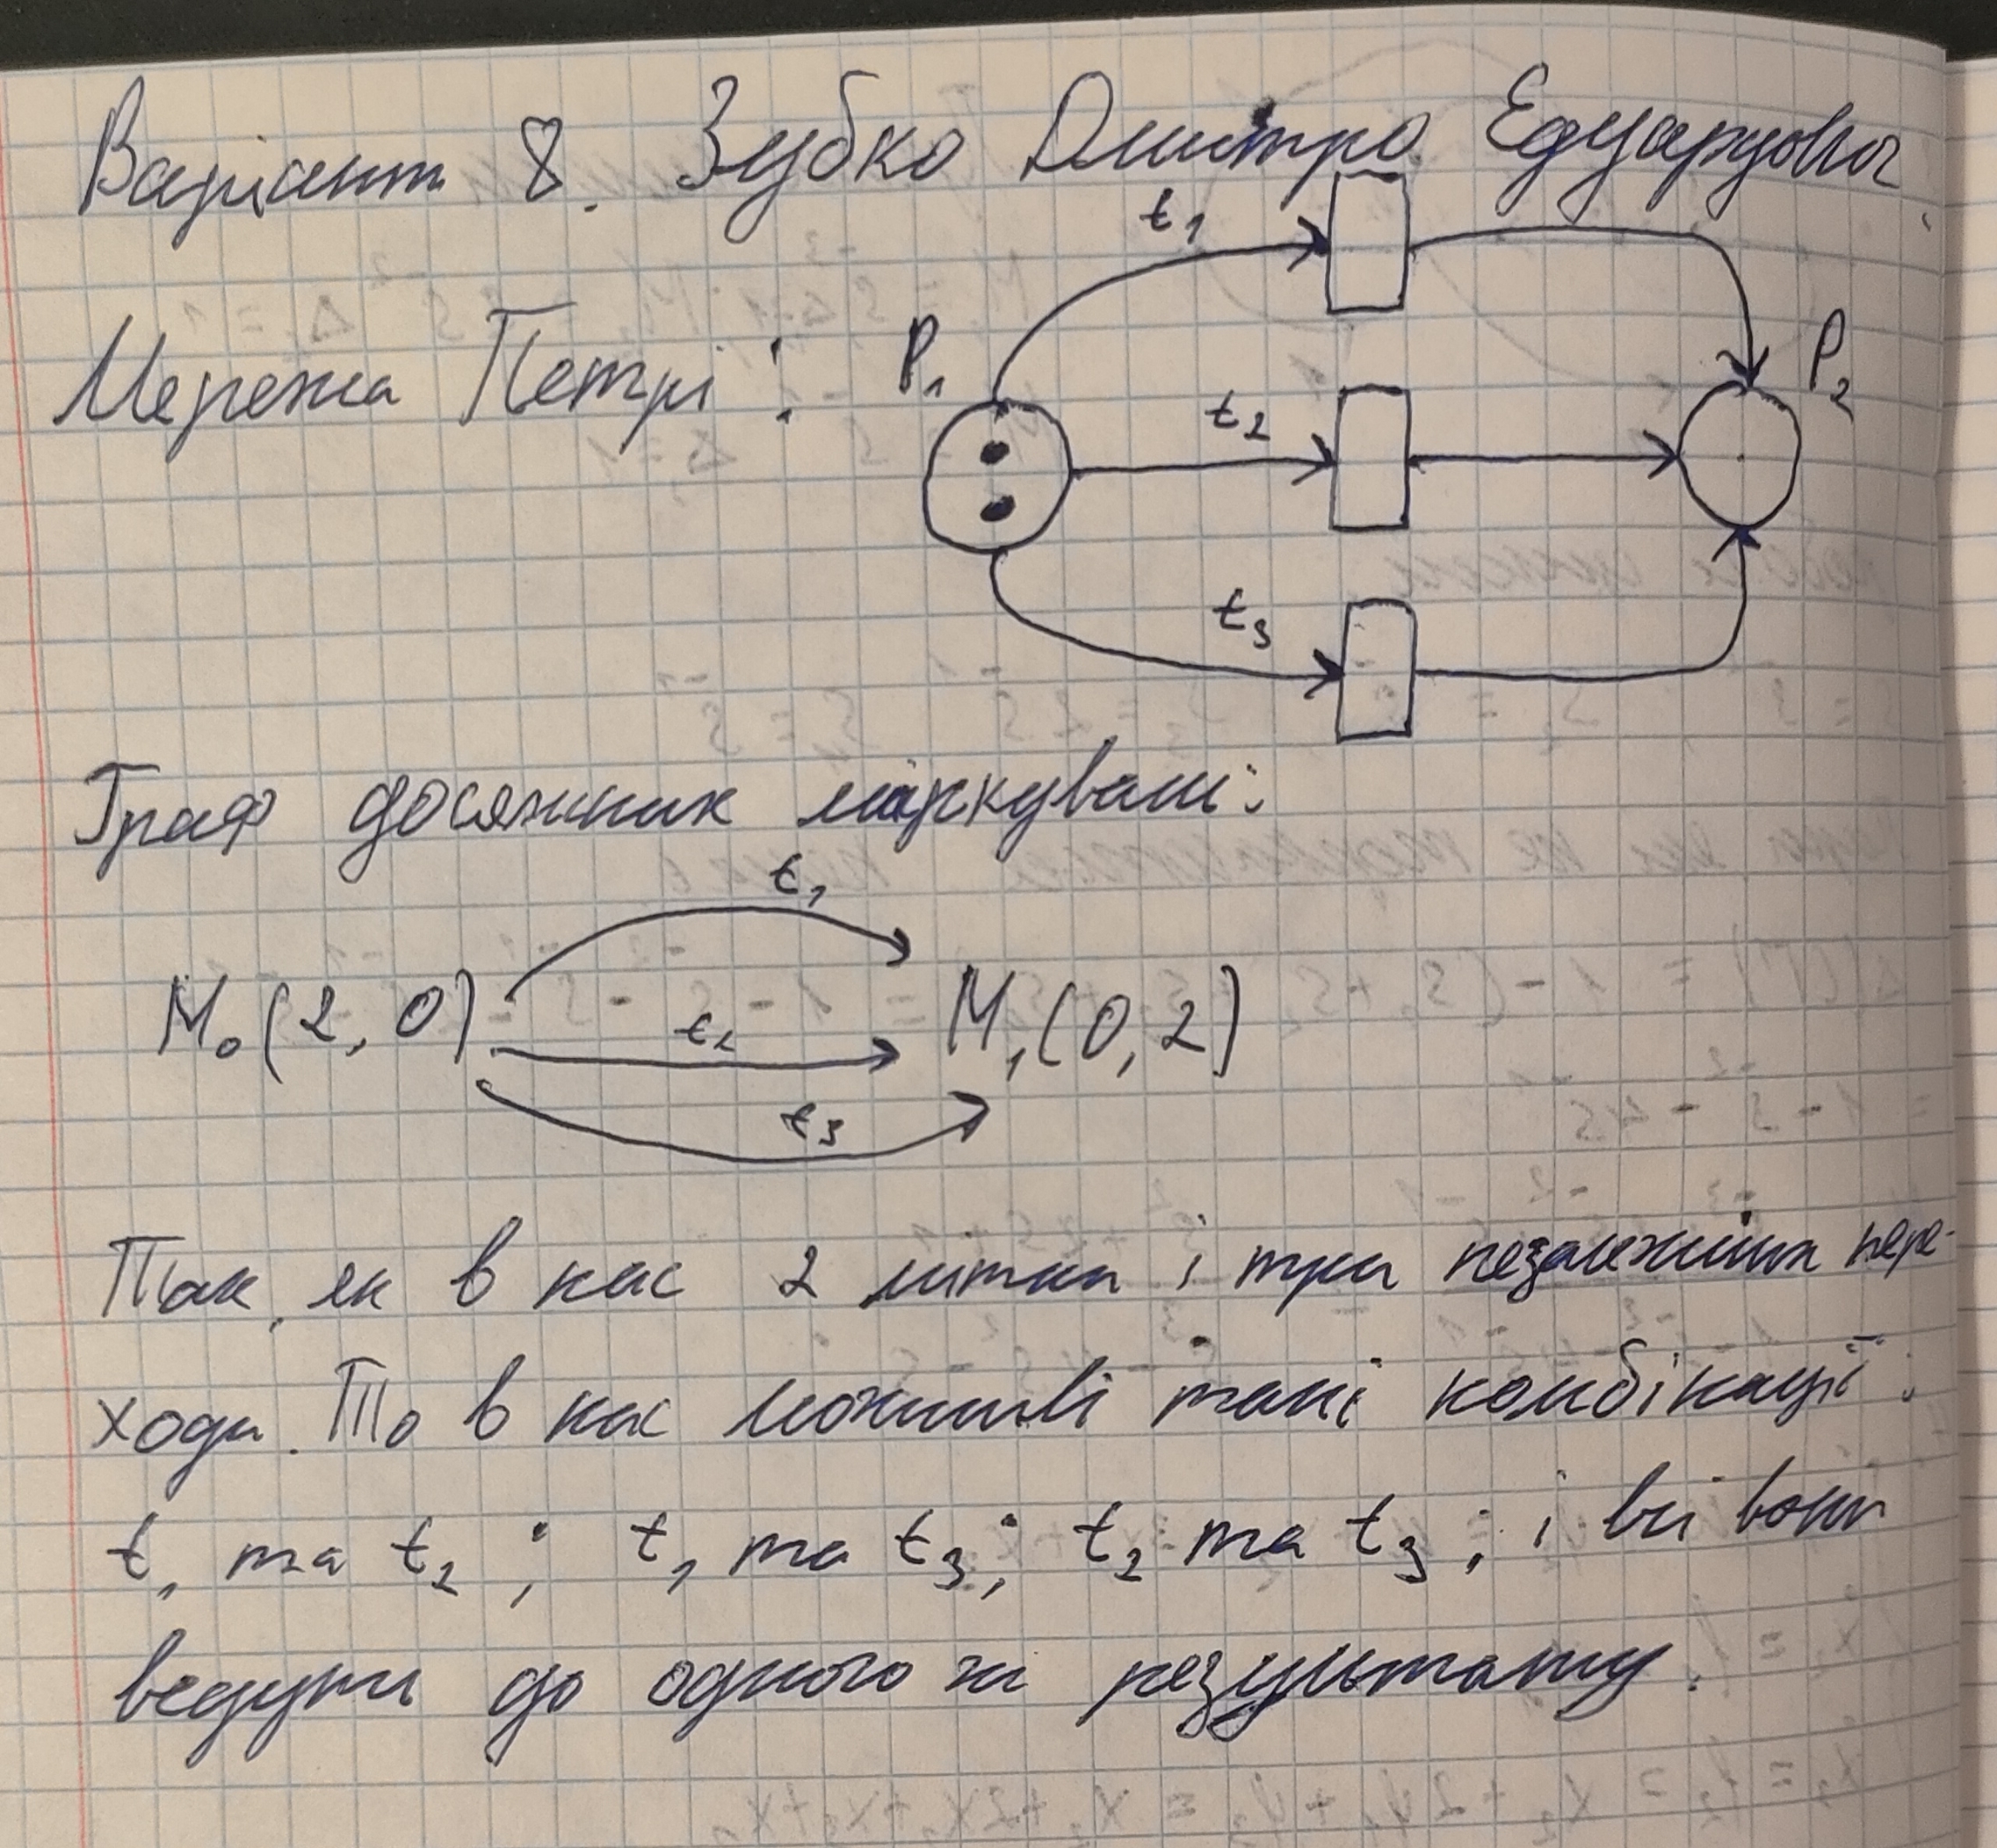 Варіант 8. Зубко Дмитро Едуардович
t₁
Мережа Петрі: P₁ P₂
t₂
t₃
Граф досяжних маркувань:
t₁
M₀(2,0) t₂ M₁(0,2)
t₃
Так, як в нас 2 мітки і три незалежних пере-
ходи. То в нас можливі такі комбінації:
t₁ та t₂; t₁ та t₃; t₂ та t₃; і всі вони
ведуть до одного
результату.